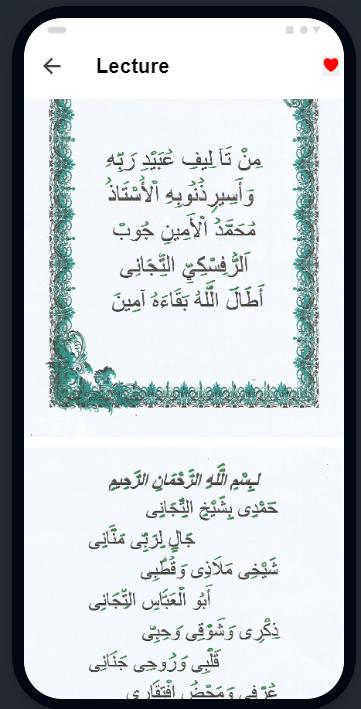 Lecture
مِنْ تَآلِيفِ عُبَيْدِ رَبِّهِ
وَأَسِيرِ ذُنُوبِهِ الْأُسْتَاذُ
مُحَمَّدُ الْأَمِينِ جُوبْ
الرُّفِسْكِيِّ التِّجَانِى
أَطَالَ اللَّهُ بَقَاءَهُ آمِينَ
بِسْمِ اللَّهِ الرَّحْمَانِ الرَّحِيمِ
حَمْدِى بِشَيْخِ التِّجَانِى
جَالٍ لِرَبِّى مَنَّانِى
شَيْخِى مَلَاذِى وَقُطْبِى
أَبُو الْعَبَّاسِ التِّجَانِى
ذِكْرِى وَشَوْقِى وَحِبِّى
قَلْبِى وَرُوحِى جَنَانِى
عُرْفِى وَمَحْضُ افْتِقَارِى